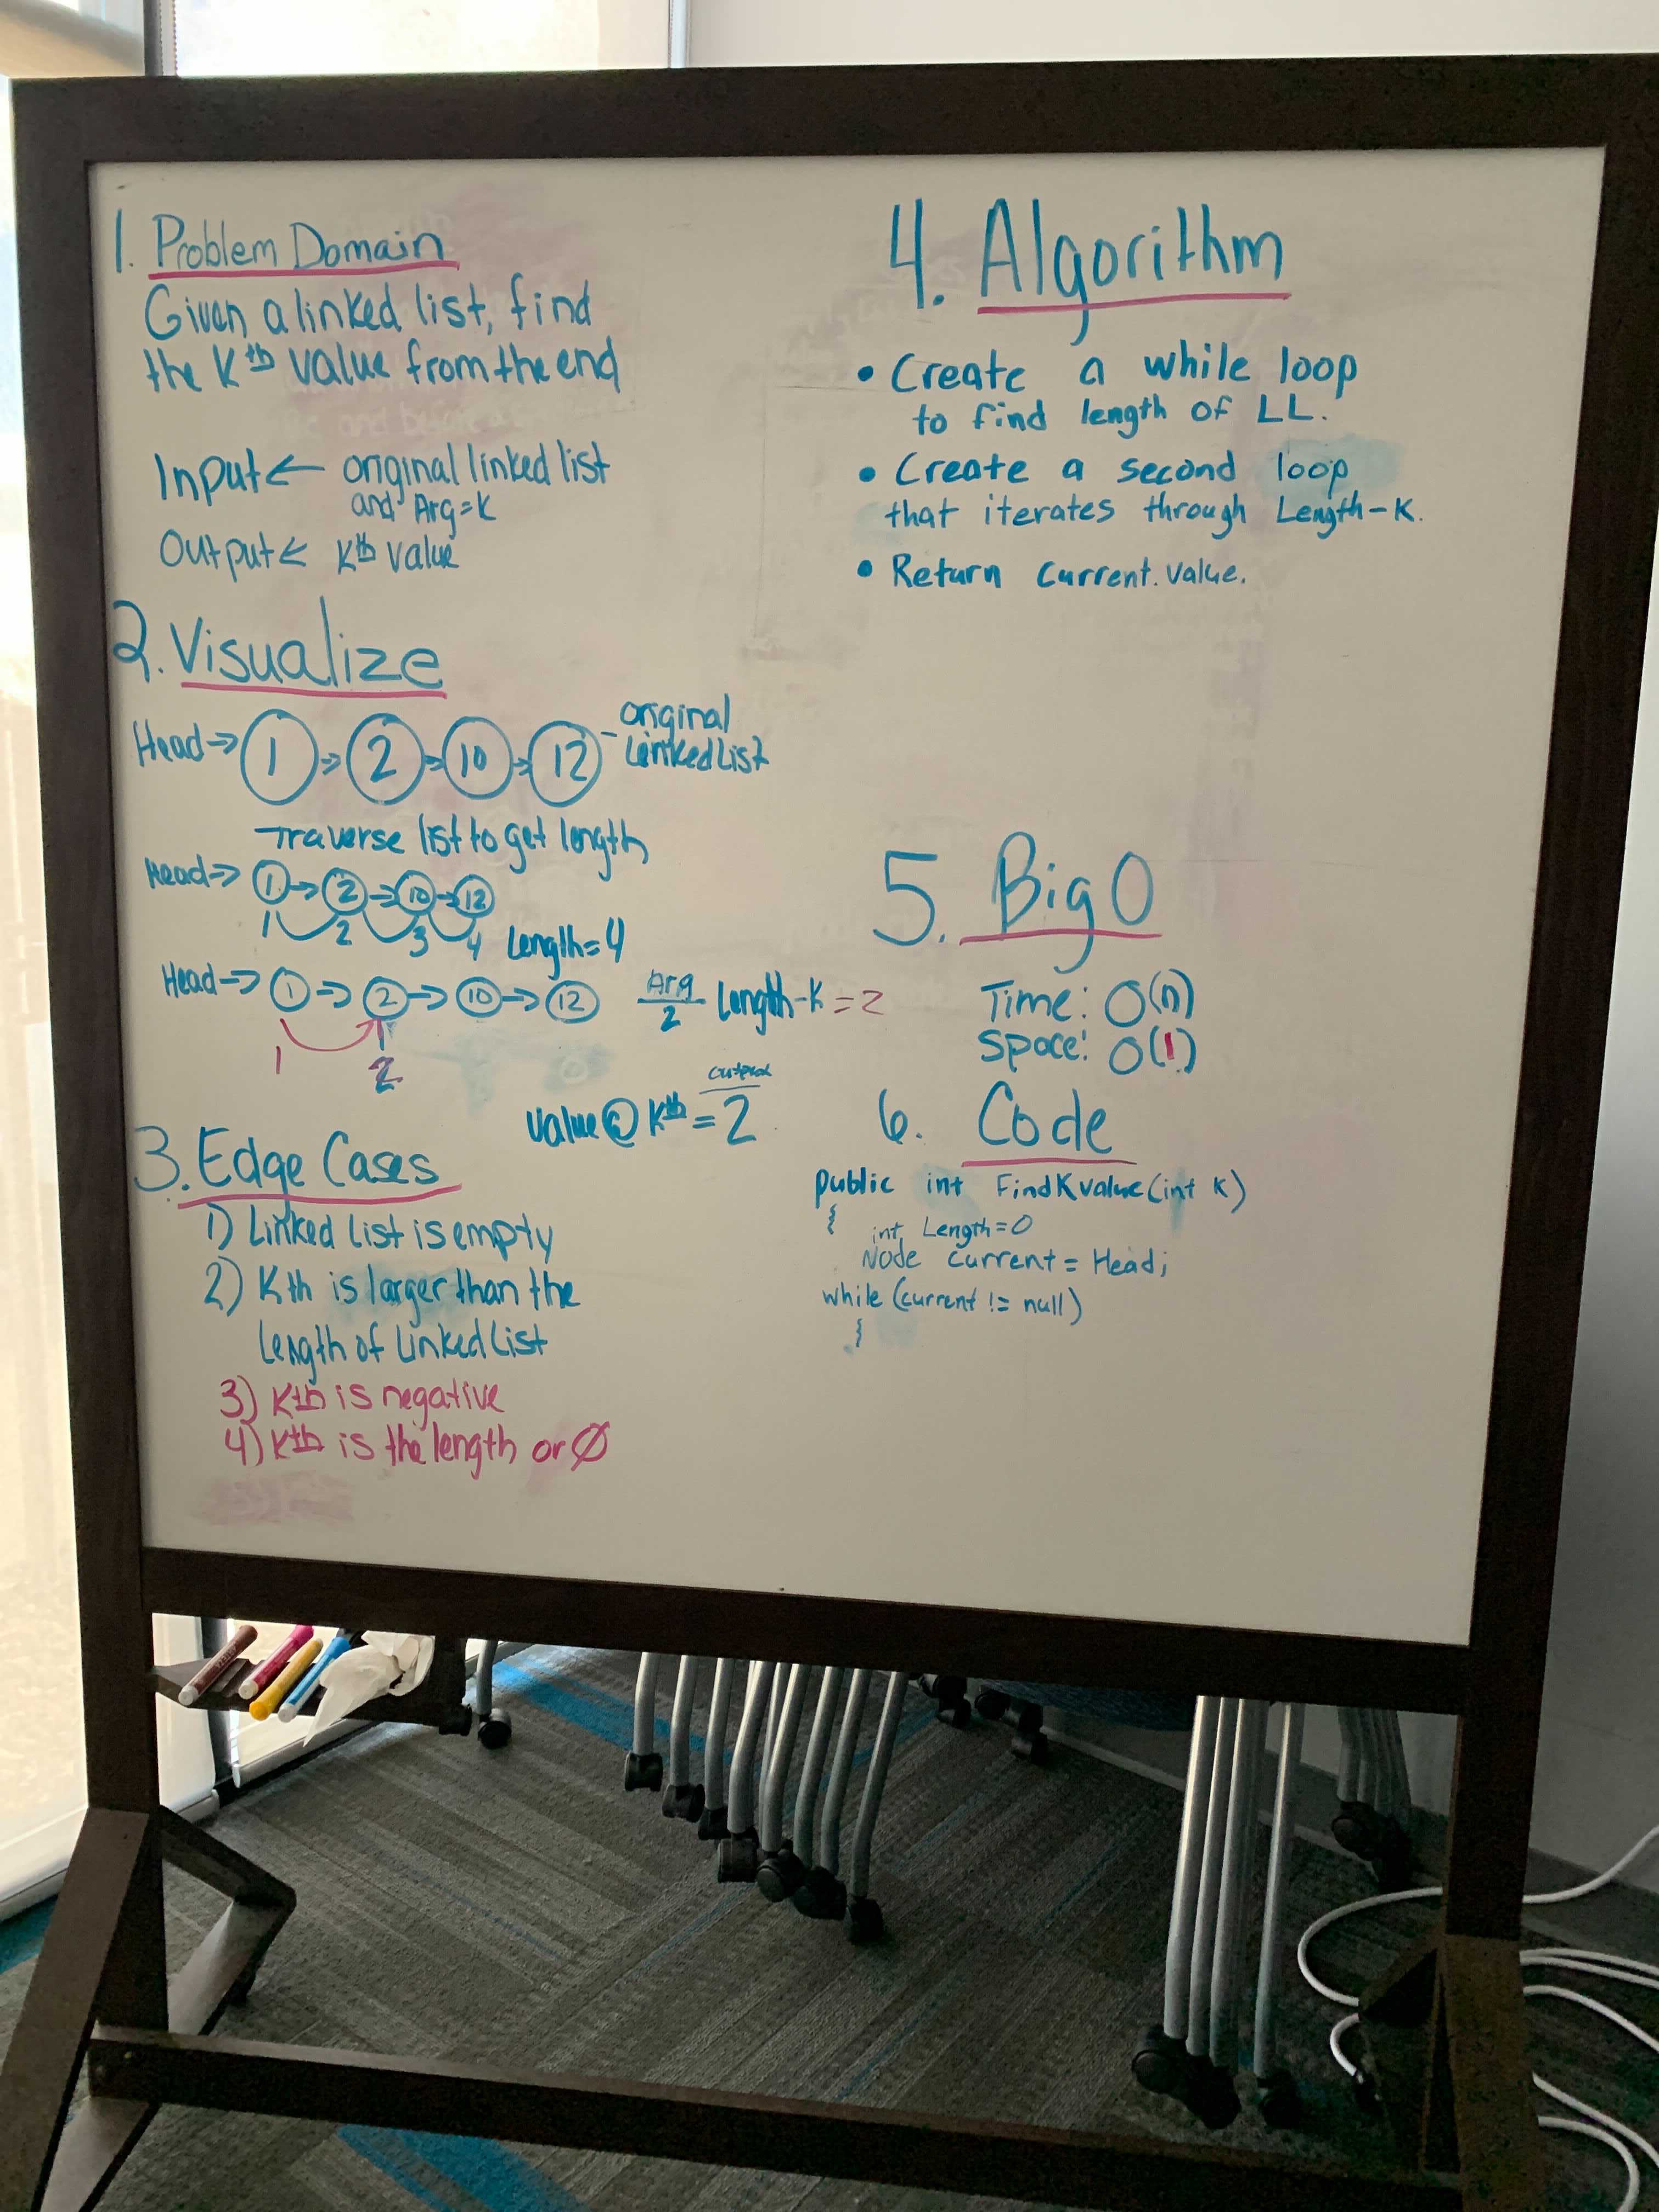 1. Problem Domain
Given a linked list, find
the Kth value from the end
Input ← original linked list
and Arg=K
Output ← Kth value
2. Visualize
Head → 1 → 2 → 10 → 12 - original
Linked List
Traverse list to get length
Head → 1 → 2 → 10 → 12
1 2 3 4 Length=4
Head → 1 → 2 → 10 → 12
1 2
Arg
2
Length-K = 2
output
Value @ Kth = 2
3. Edge Cases
1) Linked List is empty
2) Kth is larger than the
Length of Linked List
3) Kth is negative
4) Kth is the length or Ø
4. Algorithm
• Create a while loop
to find length of LL.
• Create a second loop
that iterates through Length-K.
• Return Current.Value.
5. Big O
Time: O(n)
Space: O(1)
6. Code
public int FindKvalue(int K)
{
int Length=0
Node current = Head;
while (current != null)
{